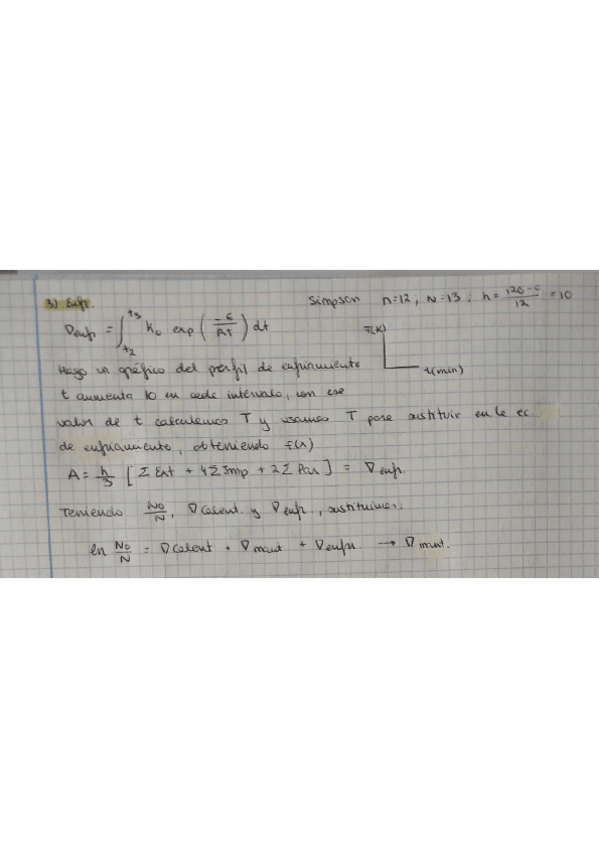 3) Enfr.
Simpson n=12, N=13; h = (120-0)/12 = 10
∇enfr = ∫_{t2}^{t3} K₀ exp(-E/RT) dt
T(K)
t(min)
Hago un gráfico del perfil de enfriamiento
t aumenta 10 en cada intervalo, con ese
valor de t calculamos T y usamos T para sustituir en la ec.
de enfriamiento, obteniendo F(x)
A = h/3 [Σ Ext + 4Σ Imp + 2Σ Par] = ∇enfr.
Teniendo No/N, ∇Calent. y ∇enfr, sustituimos.
ln No/N = ∇Calent + ∇mant + ∇enfr → ∇mant.